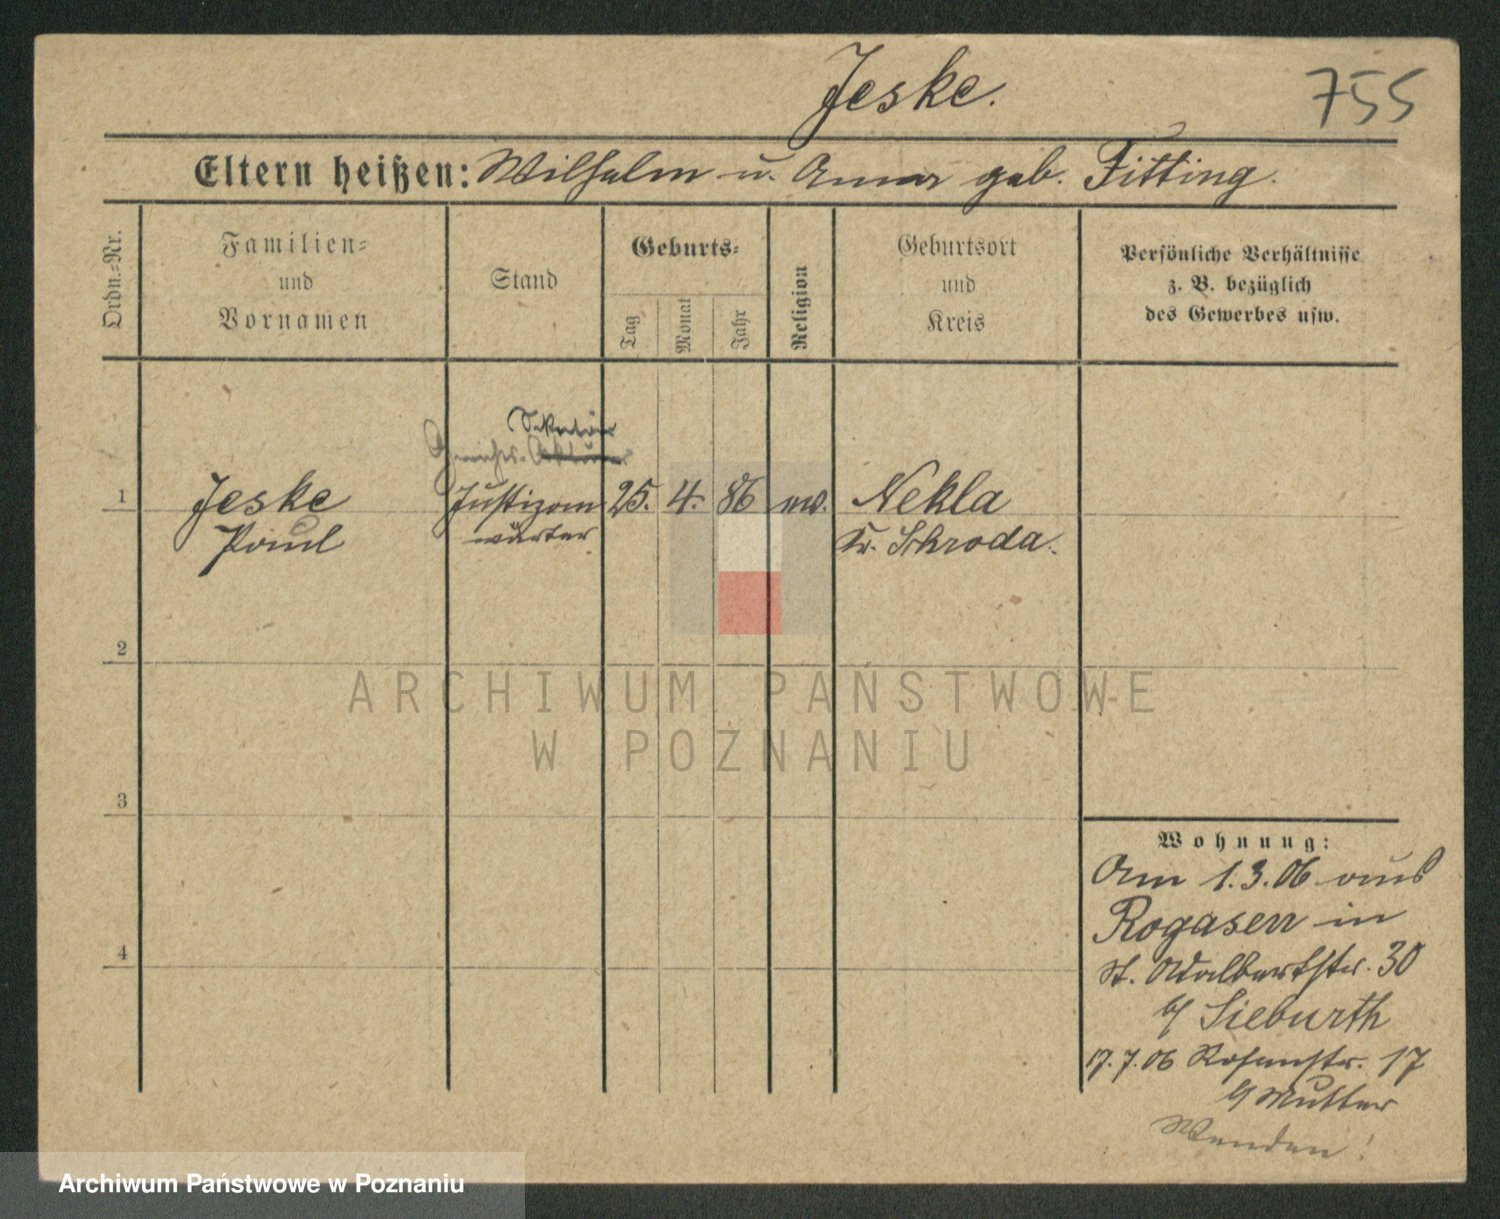 Jeske.
755
Eltern heißen: Wilhelm u. Anna geb. Fitting.
Ordn.=Nr.
Familien=
und
Vornamen
Stand
Geburts=
Tag
Monat
Jahr
Religion
Geburtsort
und
Kreis
Persönliche Verhältnisse
z. B. bezüglich
des Gewerbes usw.
Sekretär
Gerichts-Aktuar
1
Jeske
Paul
Justizan
wärter
25.
4.
86
ev.
Nekla
Kr. Schroda.
2
ARCHIWUM PAŃSTWOWE
W POZNANIU
3
4
Wohnung:
Am 1.3.06 aus
Rogasen in
St. Adalbertstr. 30
b/ Sieburth
17.7.06 Rosenstr. 17
b/ Mutter
Wenden!
Archiwum Państwowe w Poznaniu